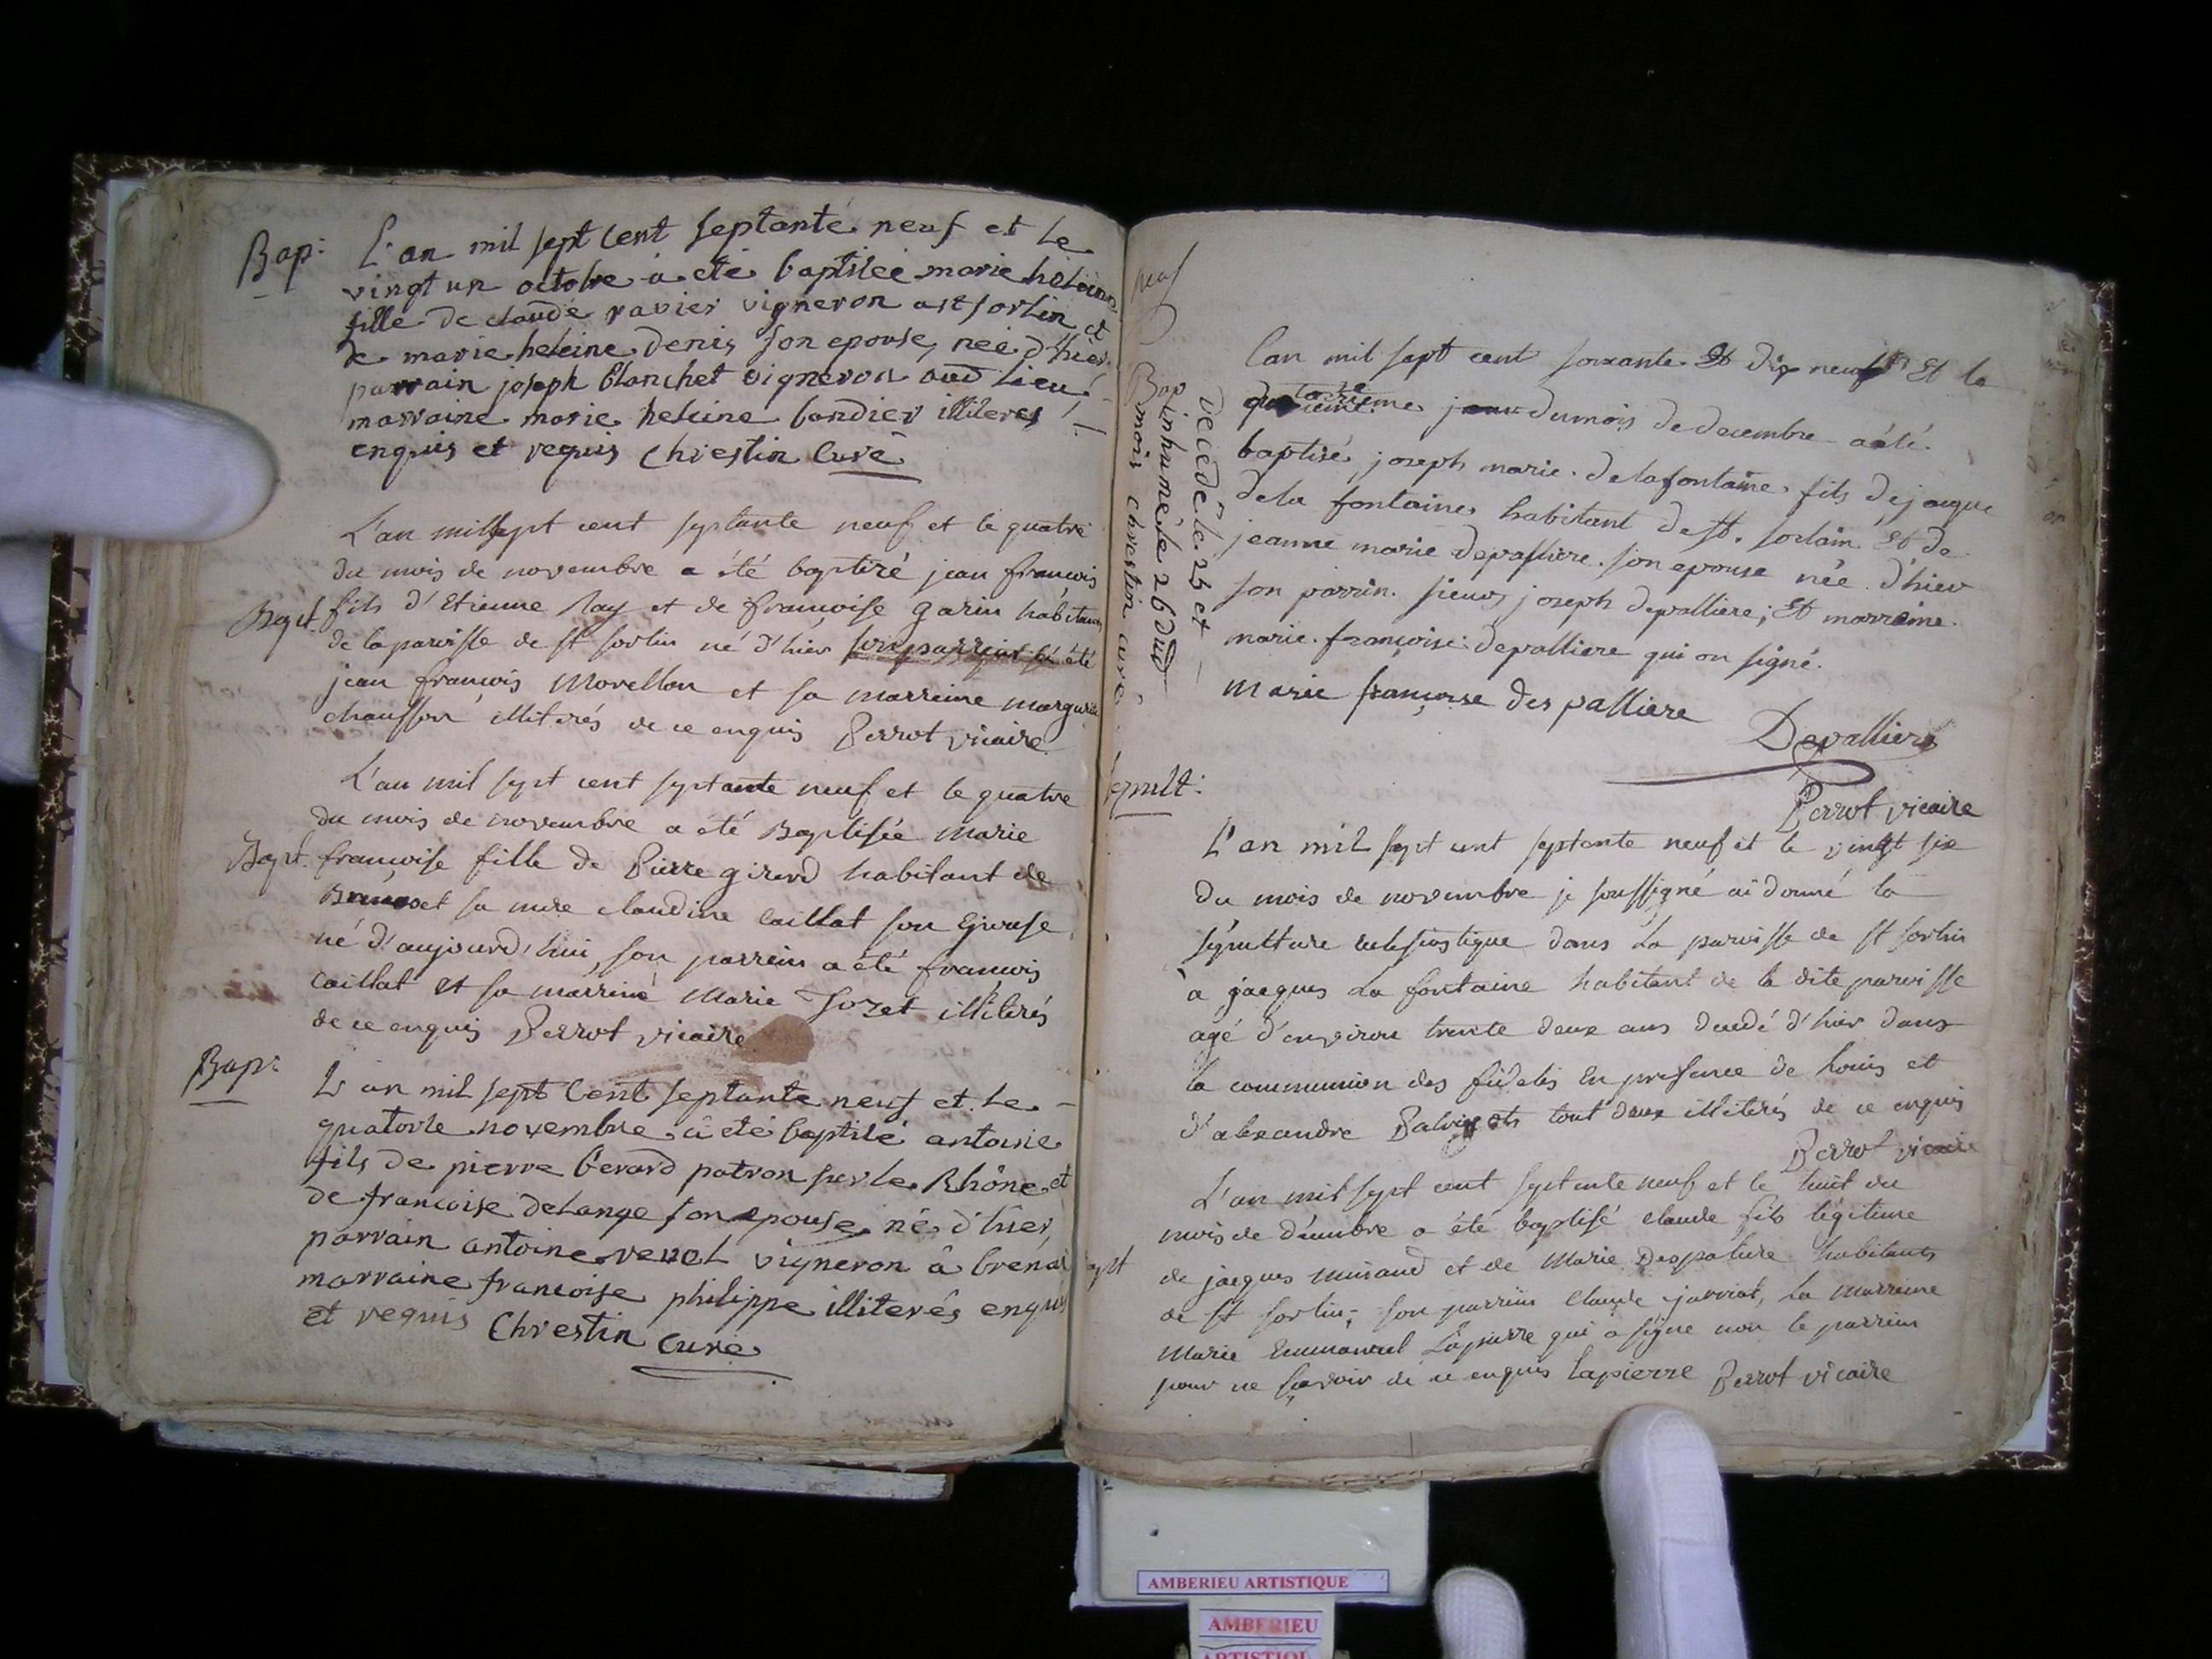 Bap:
L'an mil sept cent septante neuf et le
vingt un octobre a eté baptisée marie heleine
fille de claude ravier vigneron a st sorlin et
de marie heleine denis son epouse, neé d'hier.
parrain joseph blanchet vigneron aud lieu
marraine marie heleine bondier illiteres
enquis et requis Chrestin Curé
L'an mil sept cent septante neuf et le quatre
du mois de novembre a été baptizé jean françois
Bapt. fils d'Etienne Ray et de françoise garin habitans
de la paroisse de st sorlin né d'hier son parrein a été
jean françois Morellon et sa marreine marguerite
illiterés de ce enquis Perrot vicaire
L'an mil sept cent septante neuf et le quatre
du mois de novembre a été Baptisée Marie
Bapt. françoise fille de Pierre girerd habitant de
et sa mere claudine Caillat son Epouse
né d'aujourd'hui, son parrein a été françois
Caillat et sa marreine Marie Jozet illiterés
de ce enquis Perrot vicaire
Bap:
L'an mil sept Cent septante neuf et le
quatorze novembre a eté baptisé antoine
fils de pierre bérard patron sur le Rhône et
de françoise delange son epouse né d'hier,
parrain antoine venet vigneron à brénaz
marraine françoise philippe illiterés enquis
et requis Chrestin Curé
neuf
Bap
decedé le 25 et
inhumé le 26 dud
mois chrestin curé
l'an mil sept cent soixante et dix neuf Et le
quatorzieme jour du mois de decembre a été
baptisé, joseph marie delafontaine fils de jaque
de la fontaine habitant de st. sorlain Et de
jeanne marie depalliere son epouse née d'hier
son parrin sieur joseph depalliere; Et marraine
marie françoise depalliere qui on signé.
marie françoise des palliere
Depalliere
Perrot vicaire
sepult:
L'an mil sept cent septante neuf et le vingt six
du mois de novembre je soussigné ai donné la
sépulture eclesiastique dans la paroisse de st sorlin
à jacques La fontaine habitant de la dite paroisse
agé d'environ trente deux ans decedé d'hier dans
la communion des fidelés En presence de Louis et
d'alexandre tout deux illiterés de ce enquis
Perrot vicaire
L'an mil sept cent septante neuf et le huit du
mois de décembre a été baptisé claude fils légitime
apt de jacques et de Marie Despature habitants
de st sorlin; son parrein Claude jarriat, La marreine
Marie Emmanuel Lapierre qui a signe non le parrein
pour ne sçavoir de ce enquis Lapierre Perrot vicaire
AMBERIEU ARTISTIQUE
AMBERIEU
ARTISTIQUE